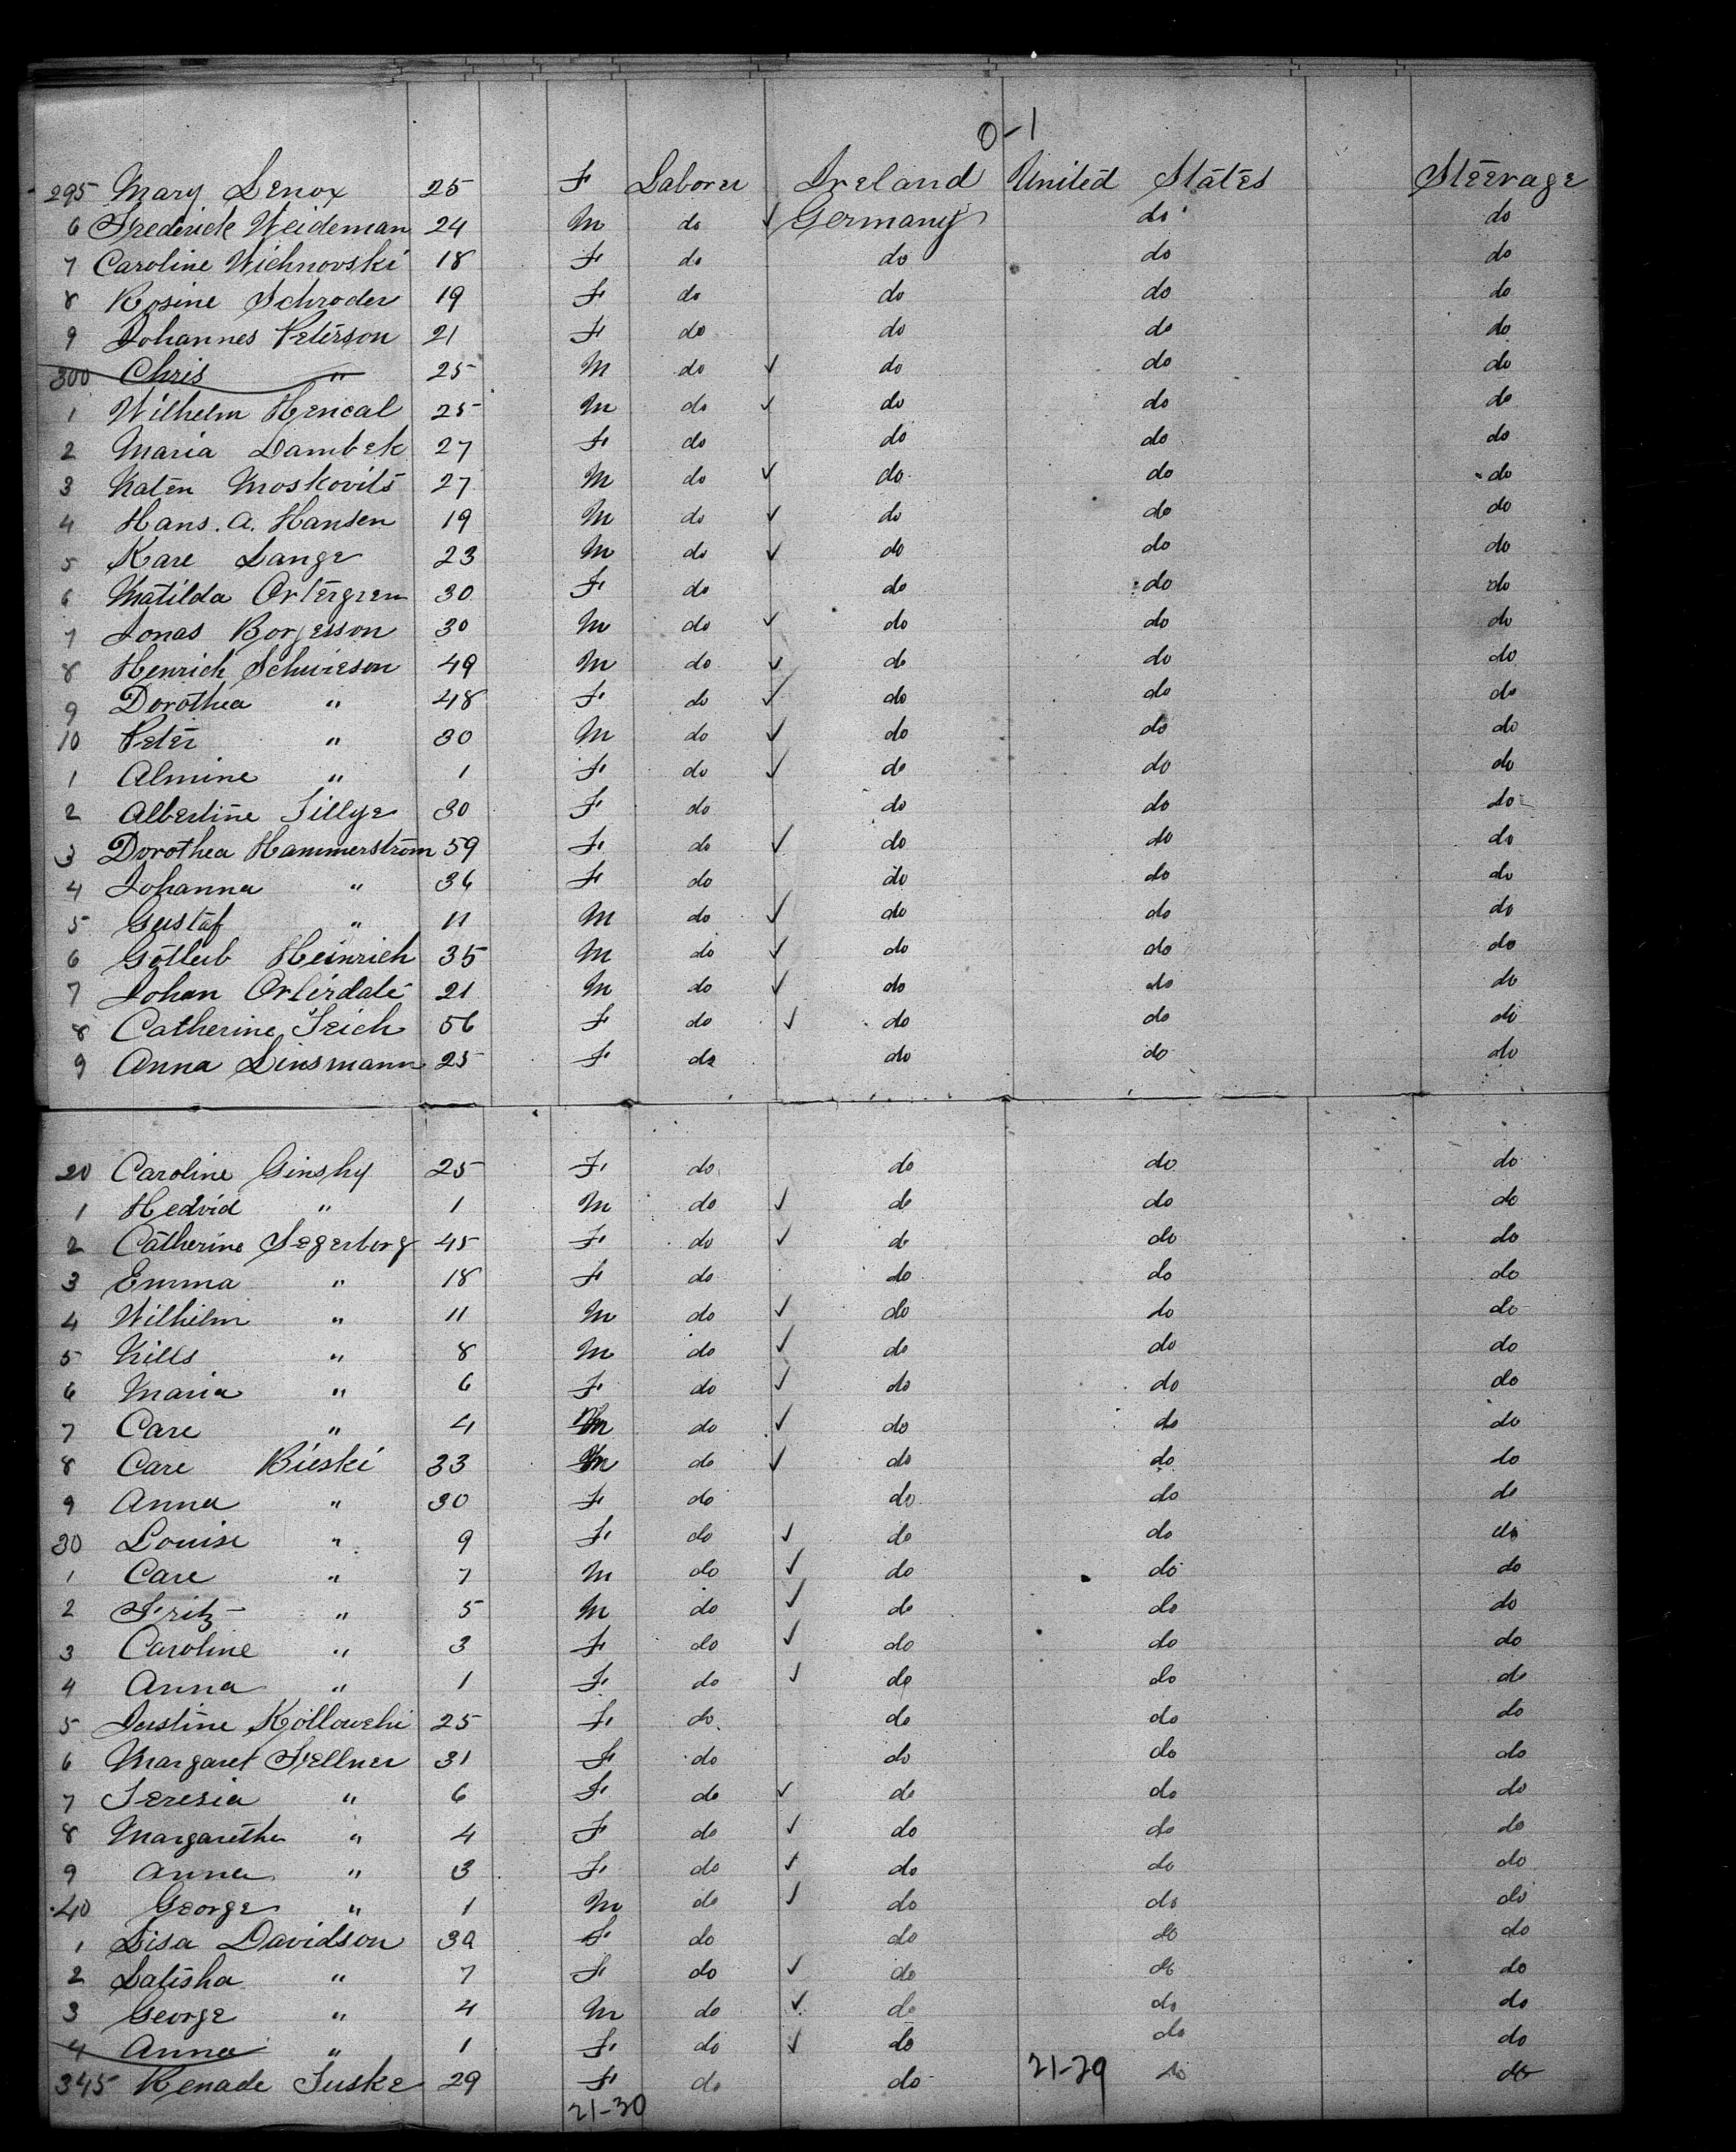 0-1
295 Mary Lenox 25 F Laborer Ireland United States Steerage
6 Frederick Weideman 24 M do ✓ Germany do do
7 Caroline Wichnovski 18 F do do do do
8 Rosine Schroder 19 F do do do do
9 Johannes Peterson 21 F do do do do
300 Chris " 25 M do ✓ do do do
1 Wilhelm Hencal 25 M do ✓ do do do
2 Maria Dambek 27 F do do do do
3 Naten Moskovits 27 M do ✓ do do do
4 Hans. A. Hansen 19 M do ✓ do do do
5 Kare Lange 23 M do ✓ do do do
6 Matilda Ortergren 30 F do do do do
7 Jonas Borjesson 30 M do ✓ do do do
8 Henrich Schuieson 49 M do ✓ do do do
9 Dorothea " 48 F do ✓ do do do
10 Peter " 30 M do ✓ do do do
1 Almine " 1 F do ✓ do do do
2 Albertine Tillye 30 F do do do do
3 Dorothea Hammerstrom 59 F do ✓ do do do
4 Johanna " 36 F do do do do
5 Gustaf " 11 M do ✓ do do do
6 Gotleib Heinrich 35 M do ✓ do do do
7 Johan Orterdale 21 M do ✓ do do do
8 Catherine Teich 56 F do ✓ do do do
9 Anna Linsmann 25 F do do do do
20 Caroline Ginshy 25 F do do do do
1 Hedvid " 1 M do ✓ do do do
2 Catherine Segerborg 45 F do ✓ do do do
3 Emma " 18 F do do do do
4 Wilhelm " 11 M do ✓ do do do
5 Nills " 8 M do ✓ do do do
6 Maria " 6 F do ✓ do do do
7 Care " 4 M do ✓ do do do
8 Care Bieski 33 M do ✓ do do do
9 Anna " 30 F do do do do
30 Louise " 9 F do ✓ do do do
1 Care " 7 M do ✓ do do do
2 Fritz " 5 M do ✓ do do do
3 Caroline " 3 F do ✓ do do do
4 Anna " 1 F do ✓ do do do
5 Justine Kollowehi 25 F do do do do
6 Margaret Fellner 31 F do do do do
7 Teresia " 6 F do ✓ do do do
8 Margarethe " 4 F do ✓ do do do
9 Anna " 3 F do ✓ do do do
40 George " 1 M do ✓ do do do
1 Lisa Davidson 39 F do do do do
2 Latisha " 7 F do ✓ do do do
3 George " 4 M do ✓ do do do
4 Anna " 1 F do ✓ do do do
345 Renade Suske 29 F do do 21-29 do do
21-30